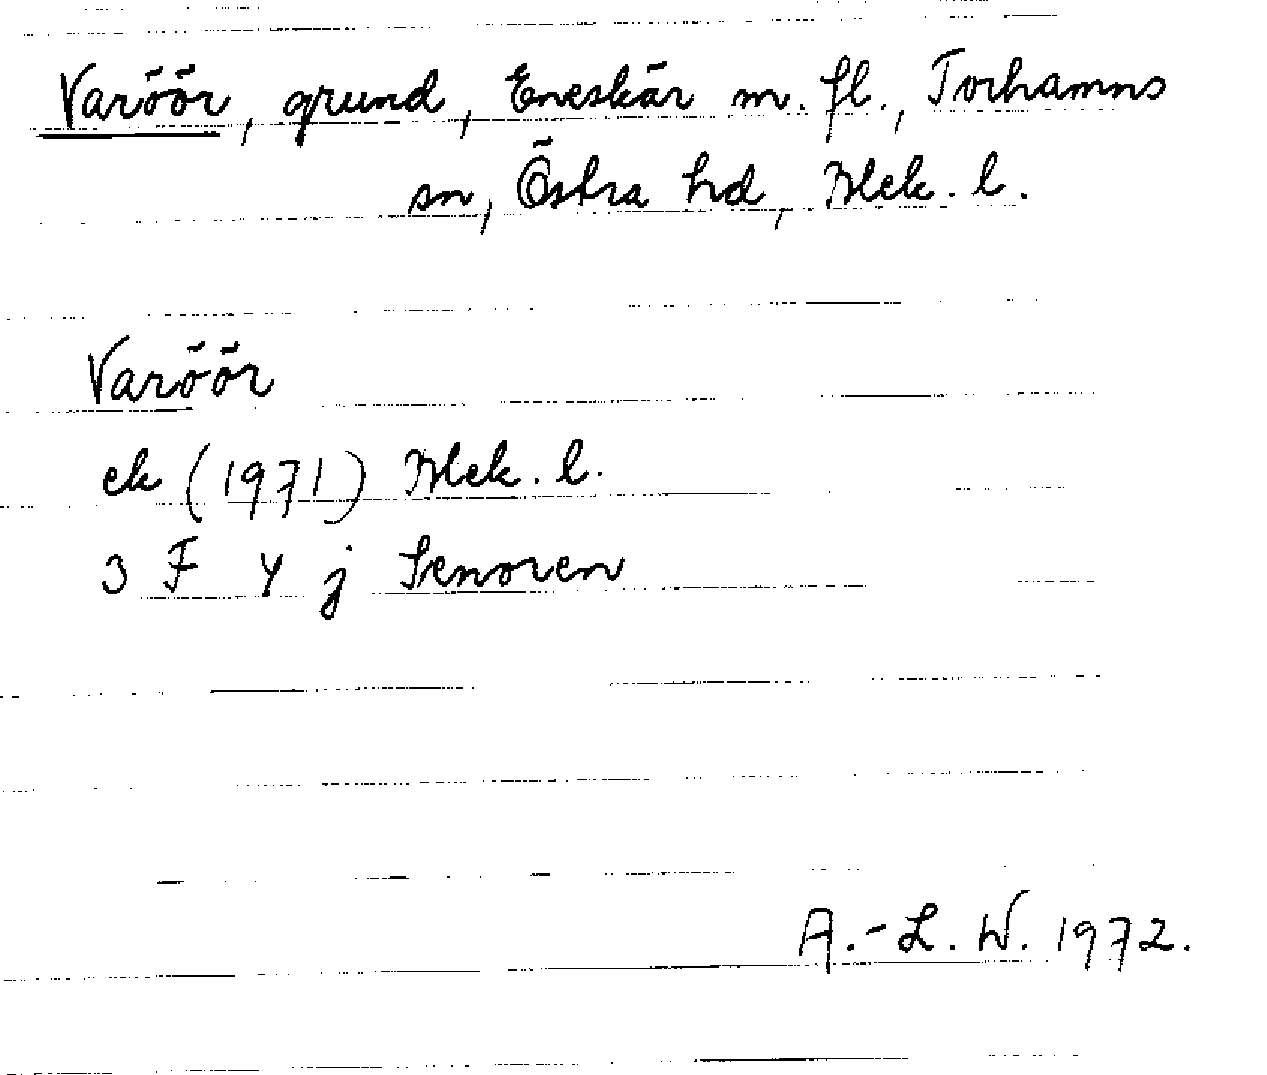 Varöör, grund, Eneskär m. fl., Torhamns
sn, Östra hd, Blek. l.
Varöör
ek (1971) Blek. l.
3 F 4 j Senoren
A.-L. W. 1972.